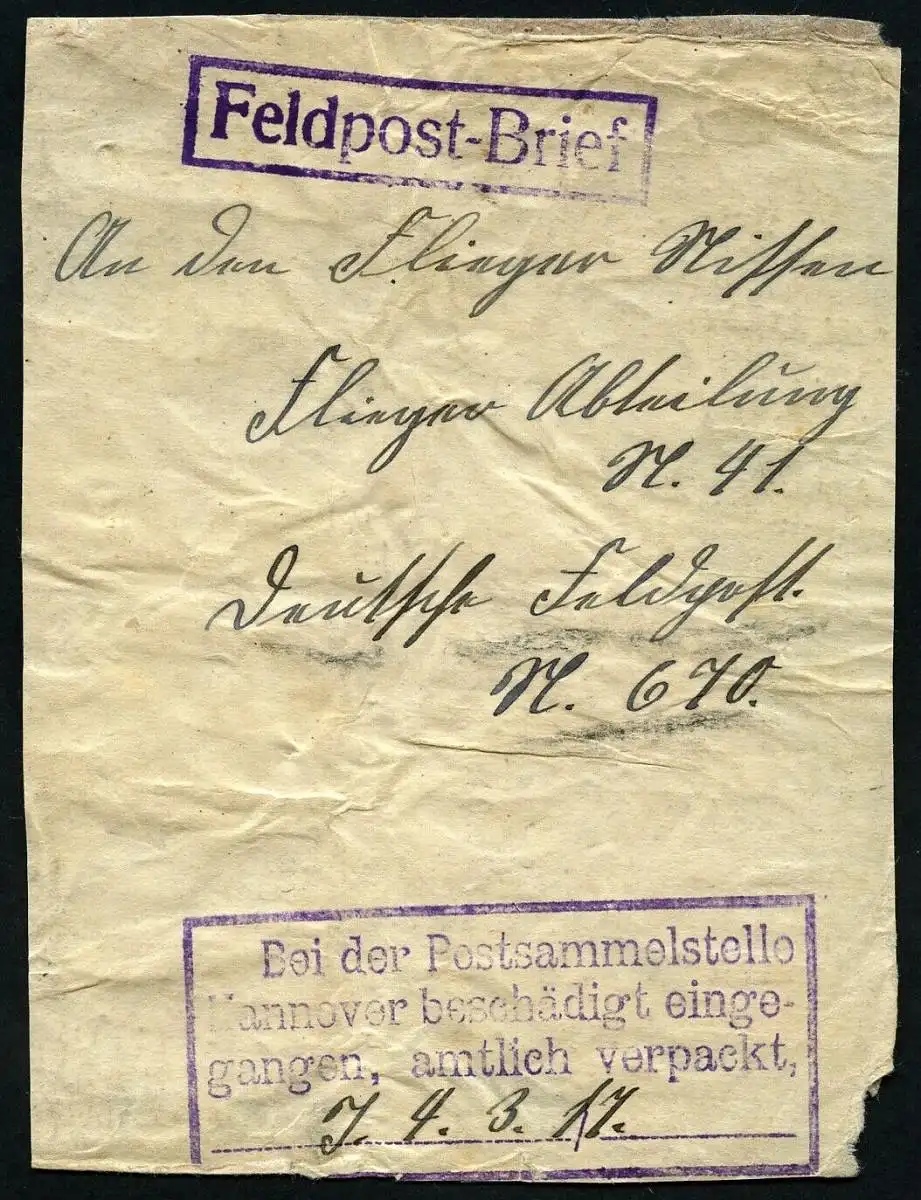 Feldpost-Brief
An den Flieger Nissen
Flieger Abteilung
N. 41.
Deutsche Feldpost.
N. 670.
Bei der Postsammelstelle
Hannover beschädigt einge-
gangen, amtlich verpackt,
J. 4. 3. 17.